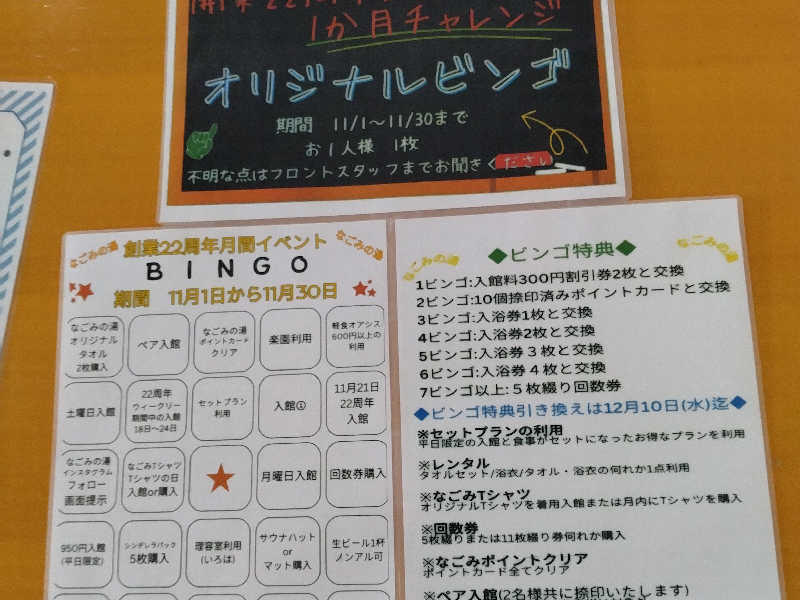 1か月チャレンジ
オリジナルビンゴ
期間 11/1～11/30まで
お1人様 1枚
不明な点はフロントスタッフまでお聞きください
なごみの湯
創業22周年月間イベント
なごみの湯
BINGO
期間 11月1日から11月30日
なごみの湯
オリジナル
タオル
2枚購入
ペア入館
なごみの湯
ポイントカード
クリア
楽園利用
軽食オアシス
600円以上の
利用
土曜日入館
22周年
ウィークリー
期間中の入館
18日～24日
セットプラン
利用
入館①
11月21日
22周年
入館
なごみの湯
インスタグラム
フォロー
画面提示
なごみTシャツ
Tシャツの日
入館or購入
月曜日入館
回数券購入
950円入館
(平日限定)
シンデレラパック
5枚購入
理容室利用
(いろは)
サウナハット
or
マット購入
生ビール1杯
ノンアル可
なごみの湯
◆ビンゴ特典◆
なごみの湯
1ビンゴ:入館料300円割引券2枚と交換
2ビンゴ:10個捺印済みポイントカードと交換
3ビンゴ:入浴券1枚と交換
4ビンゴ:入浴券2枚と交換
5ビンゴ:入浴券３枚と交換
6ビンゴ:入浴券４枚と交換
7ビンゴ以上:５枚綴り回数券
◆ビンゴ特典引き換えは12月10日(水)迄◆
※セットプランの利用
平日限定の入館と食事がセットになったお得なプランを利用
※レンタル
タオルセット/浴衣/タオル・浴衣の何れか1点利用
※なごみTシャツ
オリジナルTシャツを着用入館または月内にTシャツを購入
※回数券
5枚綴りまたは11枚綴り券何れか購入
※なごみポイントクリア
ポイントカード全てクリア
※ペア入館(2名様共に捺印いたします)